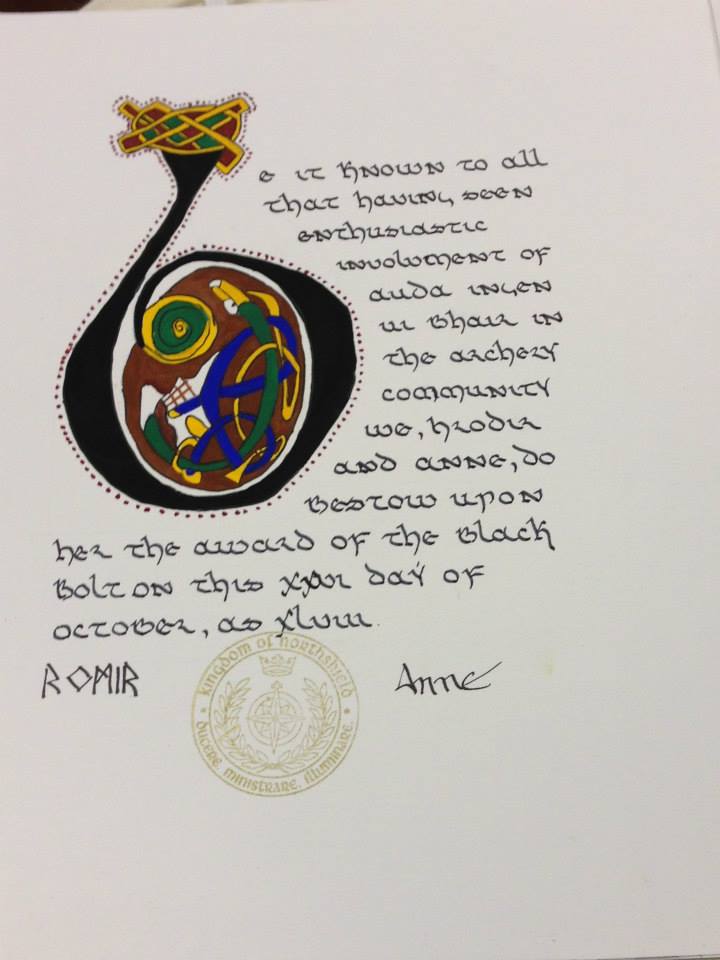 Be it known to all
that having seen
enthusiastic
involvment of
auda ingen
ui Bhair in
the archery
community
we, hrodir
and anne, do
Bestow upon
her the award of the Black
Bolt on this xxvi day of
October, as xlviii.
ROMIR
Anne
Kingdom of Northshield
Ducere, Ministrare, Illuminare.